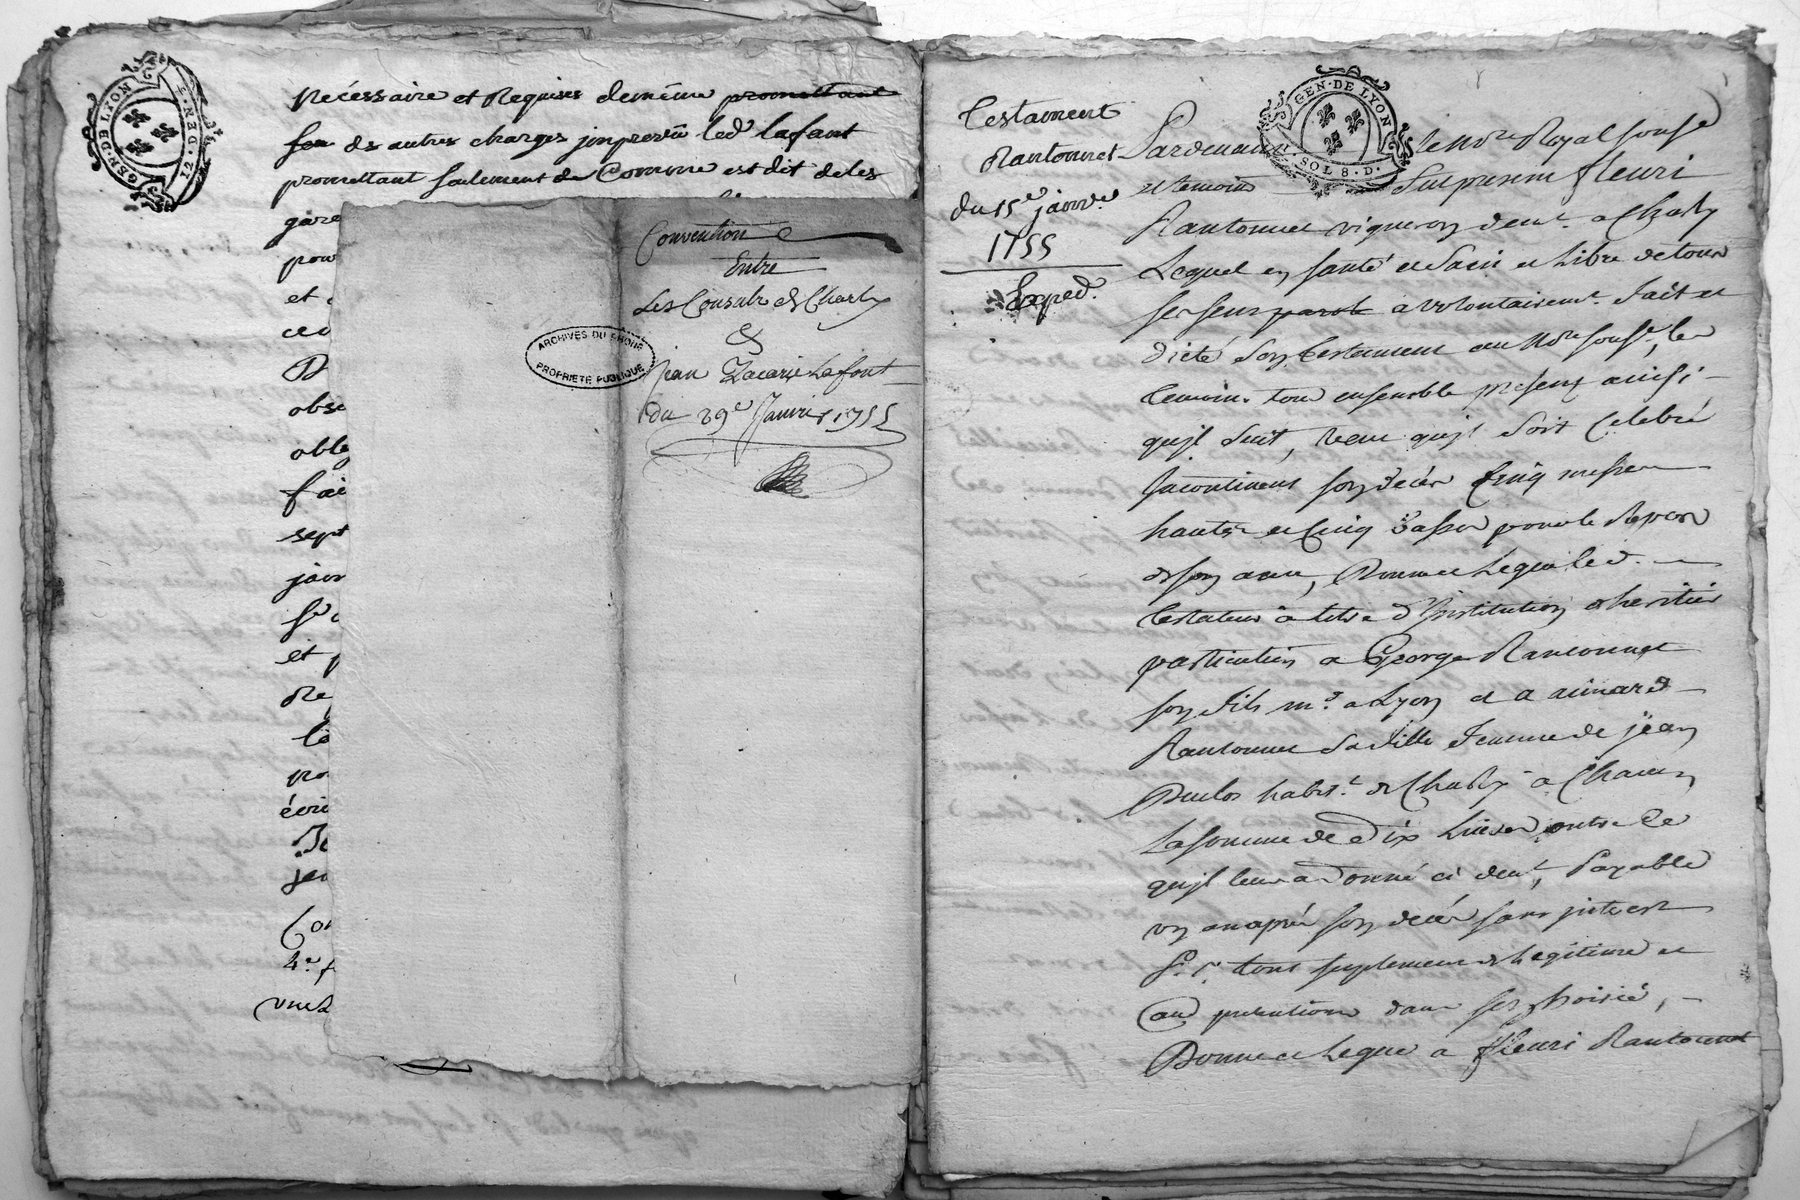 GEN·DE LYON
U. DEN. 4
Nécessaire et Requises demême promettant
feu ds autres charges jmpreveu led lafant
promettant seulement de Comme est dit deles
gare
pou
et
ced
obse
oblg
fai
sept
janv
et p
Re
la
po
écri
Je
jea
Con
4.e f
une
Convention
Entre
Les Consuls de Charly
&
Jean Zacarie Lafont
du 29e Janvier 1755
ARCHIVES DU RHONE
PROPRIETE PUBLIQUE
Testament
Rantonnet
du 15e janv.e
1755
Exped.
GEN·DE LYON
U. SOL 8. D.
Pardevant le No.re Royal sousse
et temoins Sut present fleuri
Rantonnet vigneron dem.t a Charly
Lequel en santé et Sain et Libre de tous
ses sens parole a volontairem.t fait et
dicté son testament au No.re souss.é, les
temoins tous ensemble presens ainsi
qu'jl Suit, veut qu'jl Soit Celebré
Jncontinent son deces Cinq messes
hautes et Cinq Basses pour le Repos
de son ame, Donne et Legue led.
testateur a titre d'Institution d'heritier
particulier a George Rantonnet
son fils m.d a Lyon et a aimard
Rantonnet Sa fille femme de jean
Duclos habit.t de Charly a Chacun
La somme de Dix Livres outre Ce
qu'jl leur a Donné ci dev.t, Payable
un an apres son deces sans jnterest
P.r tous suplement de Legitime et
autres pretentions dans ses hoirie,
Donne et Legue a fleuri Rantonnet